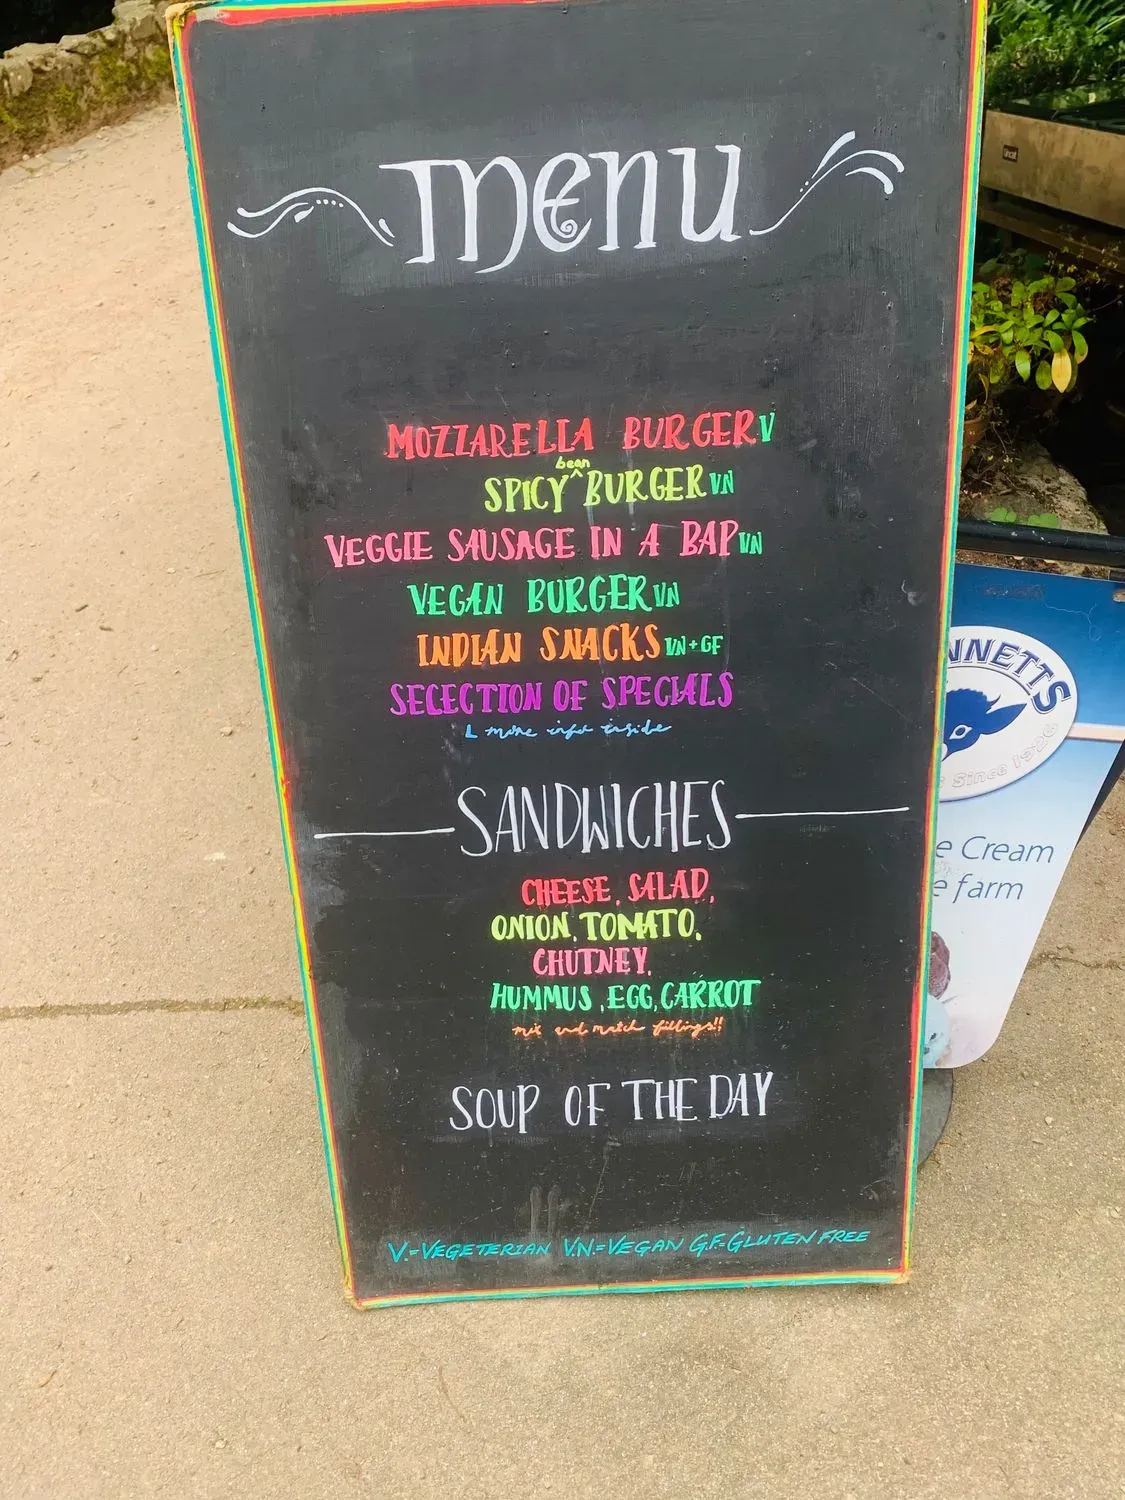 MENU
MOZZARELLA BURGER V
bean
SPICY ^ BURGER VN
VEGGIE SAUSAGE IN A BAP VN
VEGAN BURGER VN
INDIAN SNACKS VN+GF
SELECTION OF SPECIALS
more info inside
SANDWICHES
CHEESE, SALAD,
ONION, TOMATO,
CHUTNEY,
HUMMUS, EGG, CARROT
mix and match fillings!!
SOUP OF THE DAY
V.=VEGETERIAN V.N.=VEGAN G.F.=GLUTEN FREE
NNETTS
Since 1926
e Cream
e farm